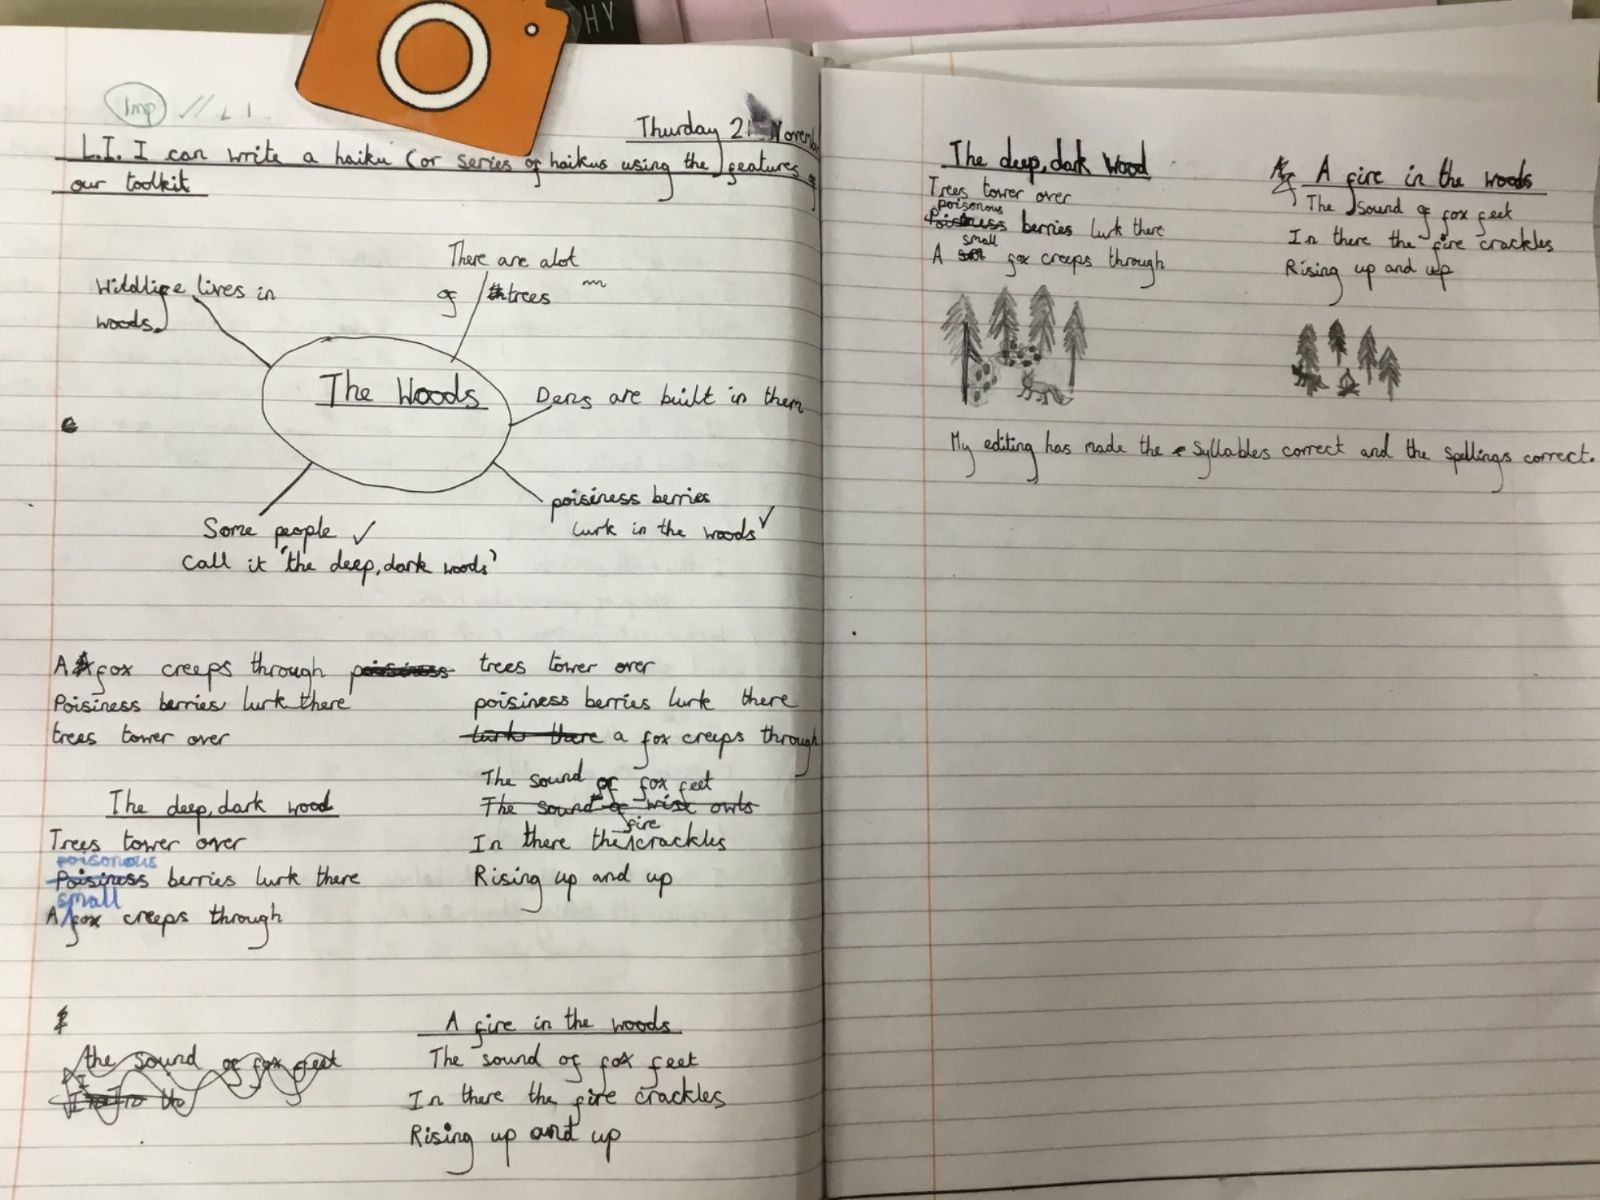 HY
Imp // L I
Thurday 21 Novem
L.I. I can write a haiku (or series of haikus using the features of
our toolkit
There are alot
of trees
Wildlife lives in
woods.
The Woods
Dens are built in them
poisiness berries
lurk in the woods ✓
Some people ✓
call it 'the deep, dark woods'
A fox creeps through poisiness
Poisiness berries lurk there
trees tower over
trees tower over
poisiness berries lurk there
lurk there a fox creeps through
The deep, dark wood
Trees tower over
poisonous
Poisiness berries lurk there
small
A fox creeps through
The sound of fox feet
The sound of wise owls
fire
In there the crackles
Rising up and up
the sound of fox feet
A fire in the woods
The sound of fox feet
In there the fire crackles
Rising up and up
The deep, dark Wood
Trees tower over
poisonous
berries lurk there
small
A fox creeps through
A fire in the woods
The sound of fox feet
In there the fire crackles
Rising up and up
My editing has made the syllables correct and the spellings correct.